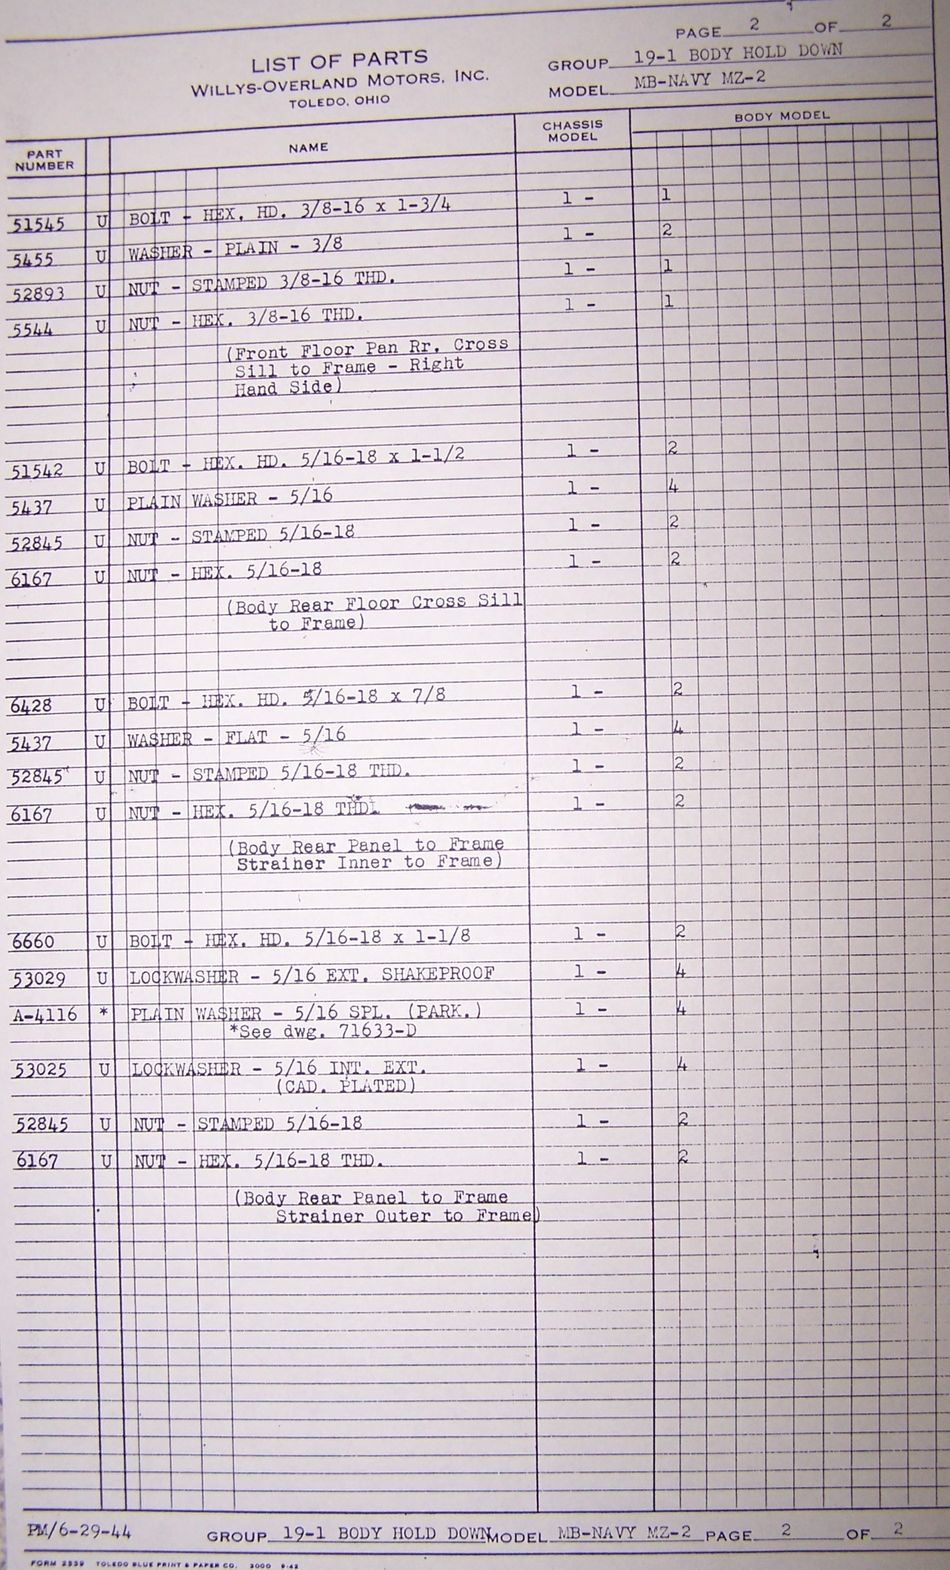 PAGE 2 OF 2
LIST OF PARTS
GROUP 19-1 BODY HOLD DOWN
WILLYS-OVERLAND MOTORS, INC.
MODEL MB-NAVY MZ-2
TOLEDO, OHIO
PART NUMBER NAME CHASSIS MODEL BODY MODEL
51545 U BOLT - HEX. HD. 3/8-16 x 1-3/4 1 - 1
5455 U WASHER - PLAIN - 3/8 1 - 2
52893 U NUT - STAMPED 3/8-16 THD. 1 - 1
5544 U NUT - HEX. 3/8-16 THD. 1 - 1
(Front Floor Pan Rr. Cross
Sill to Frame - Right
Hand Side)
51542 U BOLT - HEX. HD. 5/16-18 x 1-1/2 1 - 2
5437 U PLAIN WASHER - 5/16 1 - 4
52845 U NUT - STAMPED 5/16-18 1 - 2
6167 U NUT - HEX. 5/16-18 1 - 2
(Body Rear Floor Cross Sill
to Frame)
6428 U BOLT - HEX. HD. 5/16-18 x 7/8 1 - 2
5437 U WASHER - FLAT - 5/16 1 - 4
52845 U NUT - STAMPED 5/16-18 THD. 1 - 2
6167 U NUT - HEX. 5/16-18 THD. 1 - 2
(Body Rear Panel to Frame
Strainer Inner to Frame)
6660 U BOLT - HEX. HD. 5/16-18 x 1-1/8 1 - 2
53029 U LOCKWASHER - 5/16 EXT. SHAKEPROOF 1 - 4
A-4116 * PLAIN WASHER - 5/16 SPL. (PARK.) 1 - 4
*See dwg. 71633-D
53025 U LOCKWASHER - 5/16 INT. EXT. 1 - 4
(CAD. PLATED)
52845 U NUT - STAMPED 5/16-18 1 - 2
6167 U NUT - HEX. 5/16-18 THD. 1 - 2
(Body Rear Panel to Frame
Strainer Outer to Frame)
PM/6-29-44 GROUP 19-1 BODY HOLD DOWN MODEL MB-NAVY MZ-2 PAGE 2 OF 2
FORM 2339 TOLEDO BLUE PRINT & PAPER CO. 3000 9-42